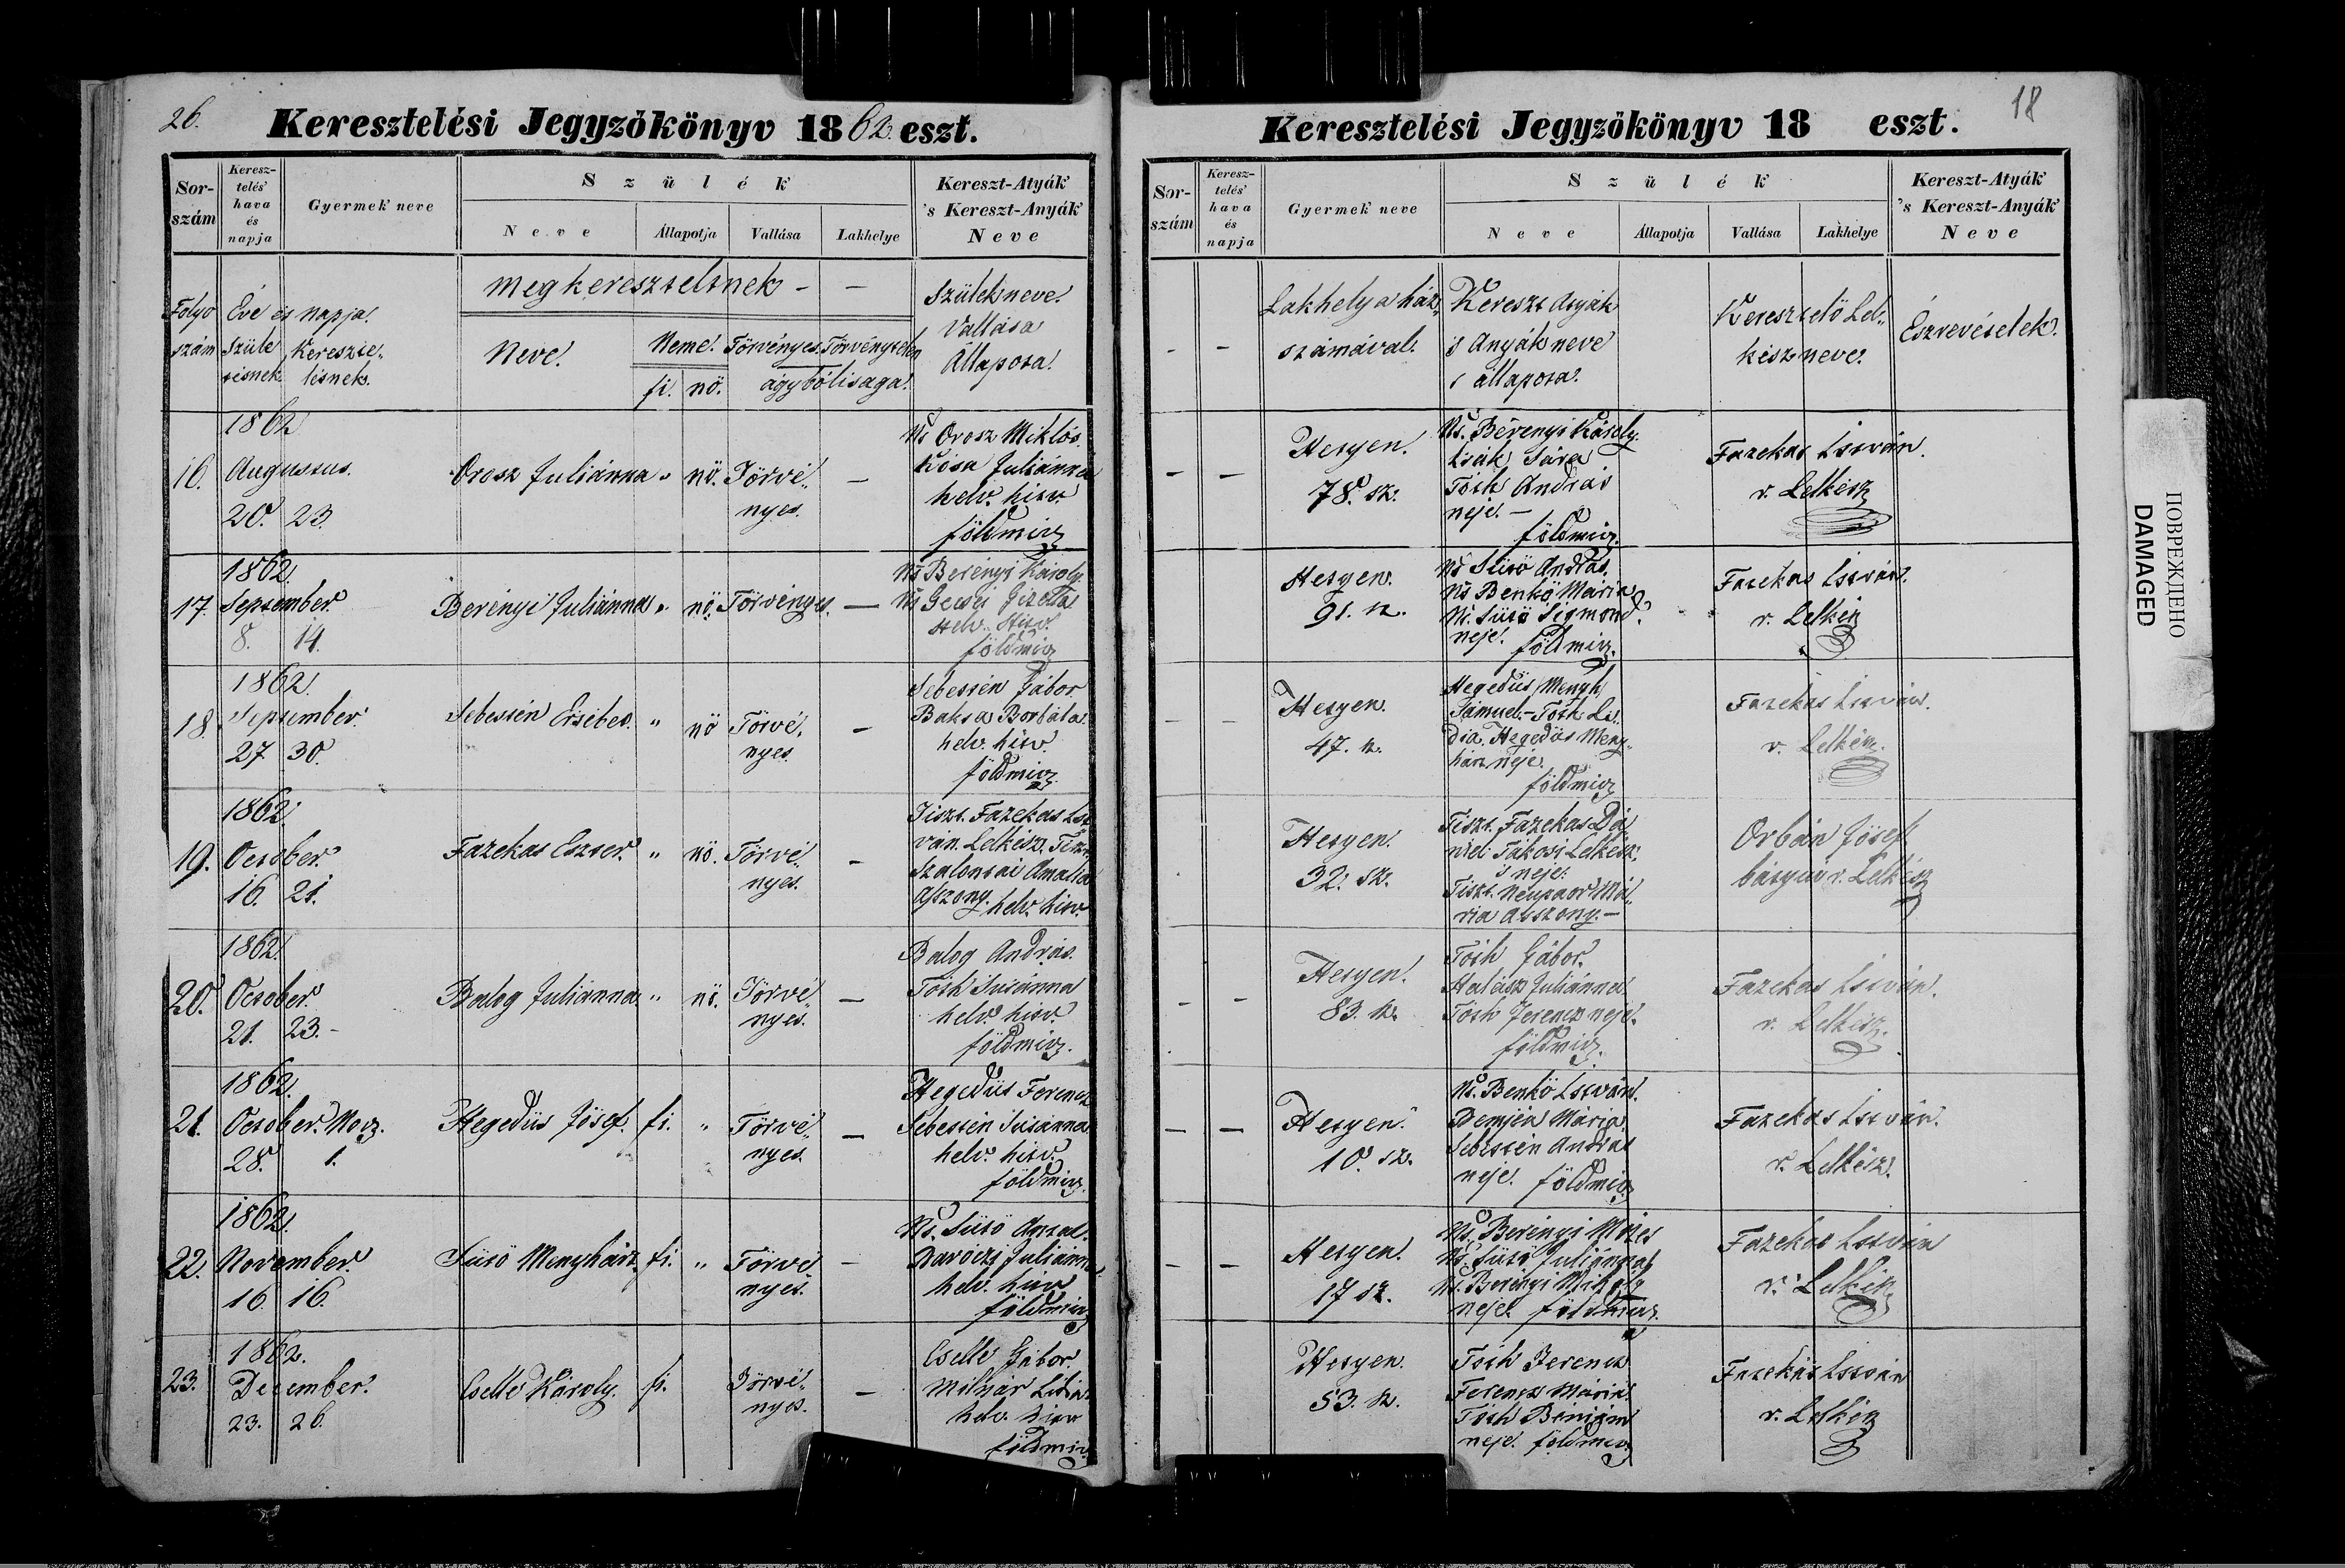 26.
Keresztelési Jegyzőkönyv 1862 eszt.
Sor-
szám
Keresz-
telés'
hava
és
napja
Gyermek neve
Szülék
Neve
Állapotja
Vallása
Lakhelye
Kereszt-Atyák
's Kereszt-Anyák
Neve
Folyó
szám
Éve és napja.
Szüle
tésnek
Kereszte„
lésnek.
Megkereszteltnek - -
Neve.
Neme.
fi. nö.
Törvényes. Törvénytelen
ágybóli
Szülék neve.
Vallása
Állapota.
16.
1862
Augustus.
20. 23.
Orosz Juliánna
"
nö.
Törvé„
nyes.
—
Ns Orosz Miklós.
Kósa Juliánna
helv. hitv.
földmivz
17.
1862.
September.
8. 14.
Berényi Juliánna
"
nö.
Törvényes.
—
Ns Berényi Károly.
Helv. Hitv.
földmivz
18.
1862.
September.
27 30.
Sebestén Ersébet.
"
nö
Törvé„
nyes.
—
Sebestén Gábor
Baksa Borbála
helv. hitv.
földmivz.
19.
1862.
October.
16. 21.
Fazekas Eszter.
"
nö.
Törvé„
nyes.
—
Tiszt. Fazekas Ist
ván. Lelkész. Tiszt.
Szalontai Amália
Aszony. helv. hitv.
20.
1862.
October.
21. 23.-
Balog Juliánna
"
nö.
Törvé„
nyes.
—
Balog András.
Tóth Susánna
helv. hitv.
földmivz.
21.
1862.
October. Novz.
28. 1.
Hegedüs Jósef.
fi.
"
Törvé„
nyes.
—
Hegedüs Ferencz
Sebestén Susánna
helv. hitv.
földmivz.
22.
1862.
November.
16. 16.
Sütö Menyhárt.
fi.
"
Törvé
nyes.
—
Ns. Sütö Antal.
Daróczi Juliánna
helv. hitv
földmivz
23.
1862.
December.
23. 26.
Csette Károly.
fi.
Törvé„
nyes.
—
Csette Gábor.
Molnár Lidia
helv. hitv
földmivz
18
Keresztelési Jegyzőkönyv 18 eszt.
Sor-
szám
Keresz-
telés'
hava
és
napja
Gyermek neve
Szülék
Neve
Állapotja
Vallása
Lakhelye
Kereszt-Atyák
's Kereszt-Anyák
Neve
- -
Lakhelye a ház„
számával.
Kereszt Atyák
s Anyák neve
s állapota.
Keresztelö Lel„
kész neve.
Észrevételek.
- -
Hetyen.
78. sz.
Ns. Berényi Károly.
Isák Sára
Tóth András
neje. -
földmivz.
Fazekas István.
r. Lelkész
Hetyen.
91. sz.
Ns Sütö András.
Ns Benkö Mária
Ns. Sütö Sigmond
neje. földmivz.
Fazekas István.
r. Lelkész
- -
Hetyen.
47. sz.
Hegedüs Menyh
Sámuel. - Tóth Li„
dia. Hegedüs Meny„
hárt neje.
földmivz
Fazekas István.
r. Lelkész.
Hetyen.
32. sz.
Tiszt. Fazekas Dá„
niel Tákosi Lelkész.
s neje.
ria Asszony. -
Orbán Jósef.
bátyui r. Lelkész
- -
Hetyen.
83. sz.
Tóth Gábor.
Halász Juliánna
Tóth Ferencz neje.
földmivz.
Fazekas István.
r. Lelkész.
- -
Hetyen.
10. sz.
Ns. Benkö István.
Demjén Mária
Sebestén András
neje. földmivz
Fazekas István.
r. Lelkész.
- -
Hetyen.
17 sz.
Ns. Berényi Mózes
Ns. Sütö Juliánna
Ns. Berényi Mihály
neje. földmivz.
Fazekas István
r. Lelkész
Hetyen.
53. sz.
Tóth Ferencz.
Ferencz Mária.
Tóth Béniám
neje. földmivz
Fazekas István
r. Lelkész
ПОВРЕЖДЕНО
DAMAGED